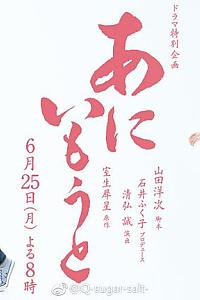 ドラマ特別企画
あにいもうと
山田洋次 脚本
石井ふく子 プロデュース
清弘誠 演出
室生犀星 原作
6月25日(月)よる8時
@Q-sugar-salt-